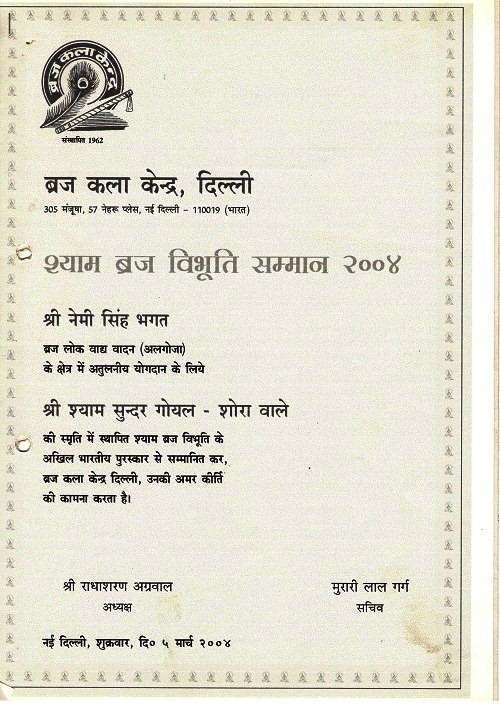 ब्रज कला केन्द्र
संस्थापित 1962
ब्रज कला केन्द्र, दिल्ली
305 मंजूषा, 57 नेहरू प्लेस, नई दिल्ली - 110019 (भारत)
श्याम ब्रज विभूति सम्मान २००४
श्री नेमी सिंह भगत
ब्रज लोक वाद्य वादन (अलगोजा)
के क्षेत्र में अतुलनीय योगदान के लिये
श्री श्याम सुन्दर गोयल - शोरा वाले
की स्मृति में स्थापित श्याम ब्रज विभूति के
अखिल भारतीय पुरस्कार से सम्मानित कर,
ब्रज कला केन्द्र दिल्ली, उनकी अमर कीर्ति
की कामना करता है।
श्री राधाशरण अग्रवाल
अध्यक्ष
मुरारी लाल गर्ग
सचिव
नई दिल्ली, शुक्रवार, दि० ५ मार्च २००४